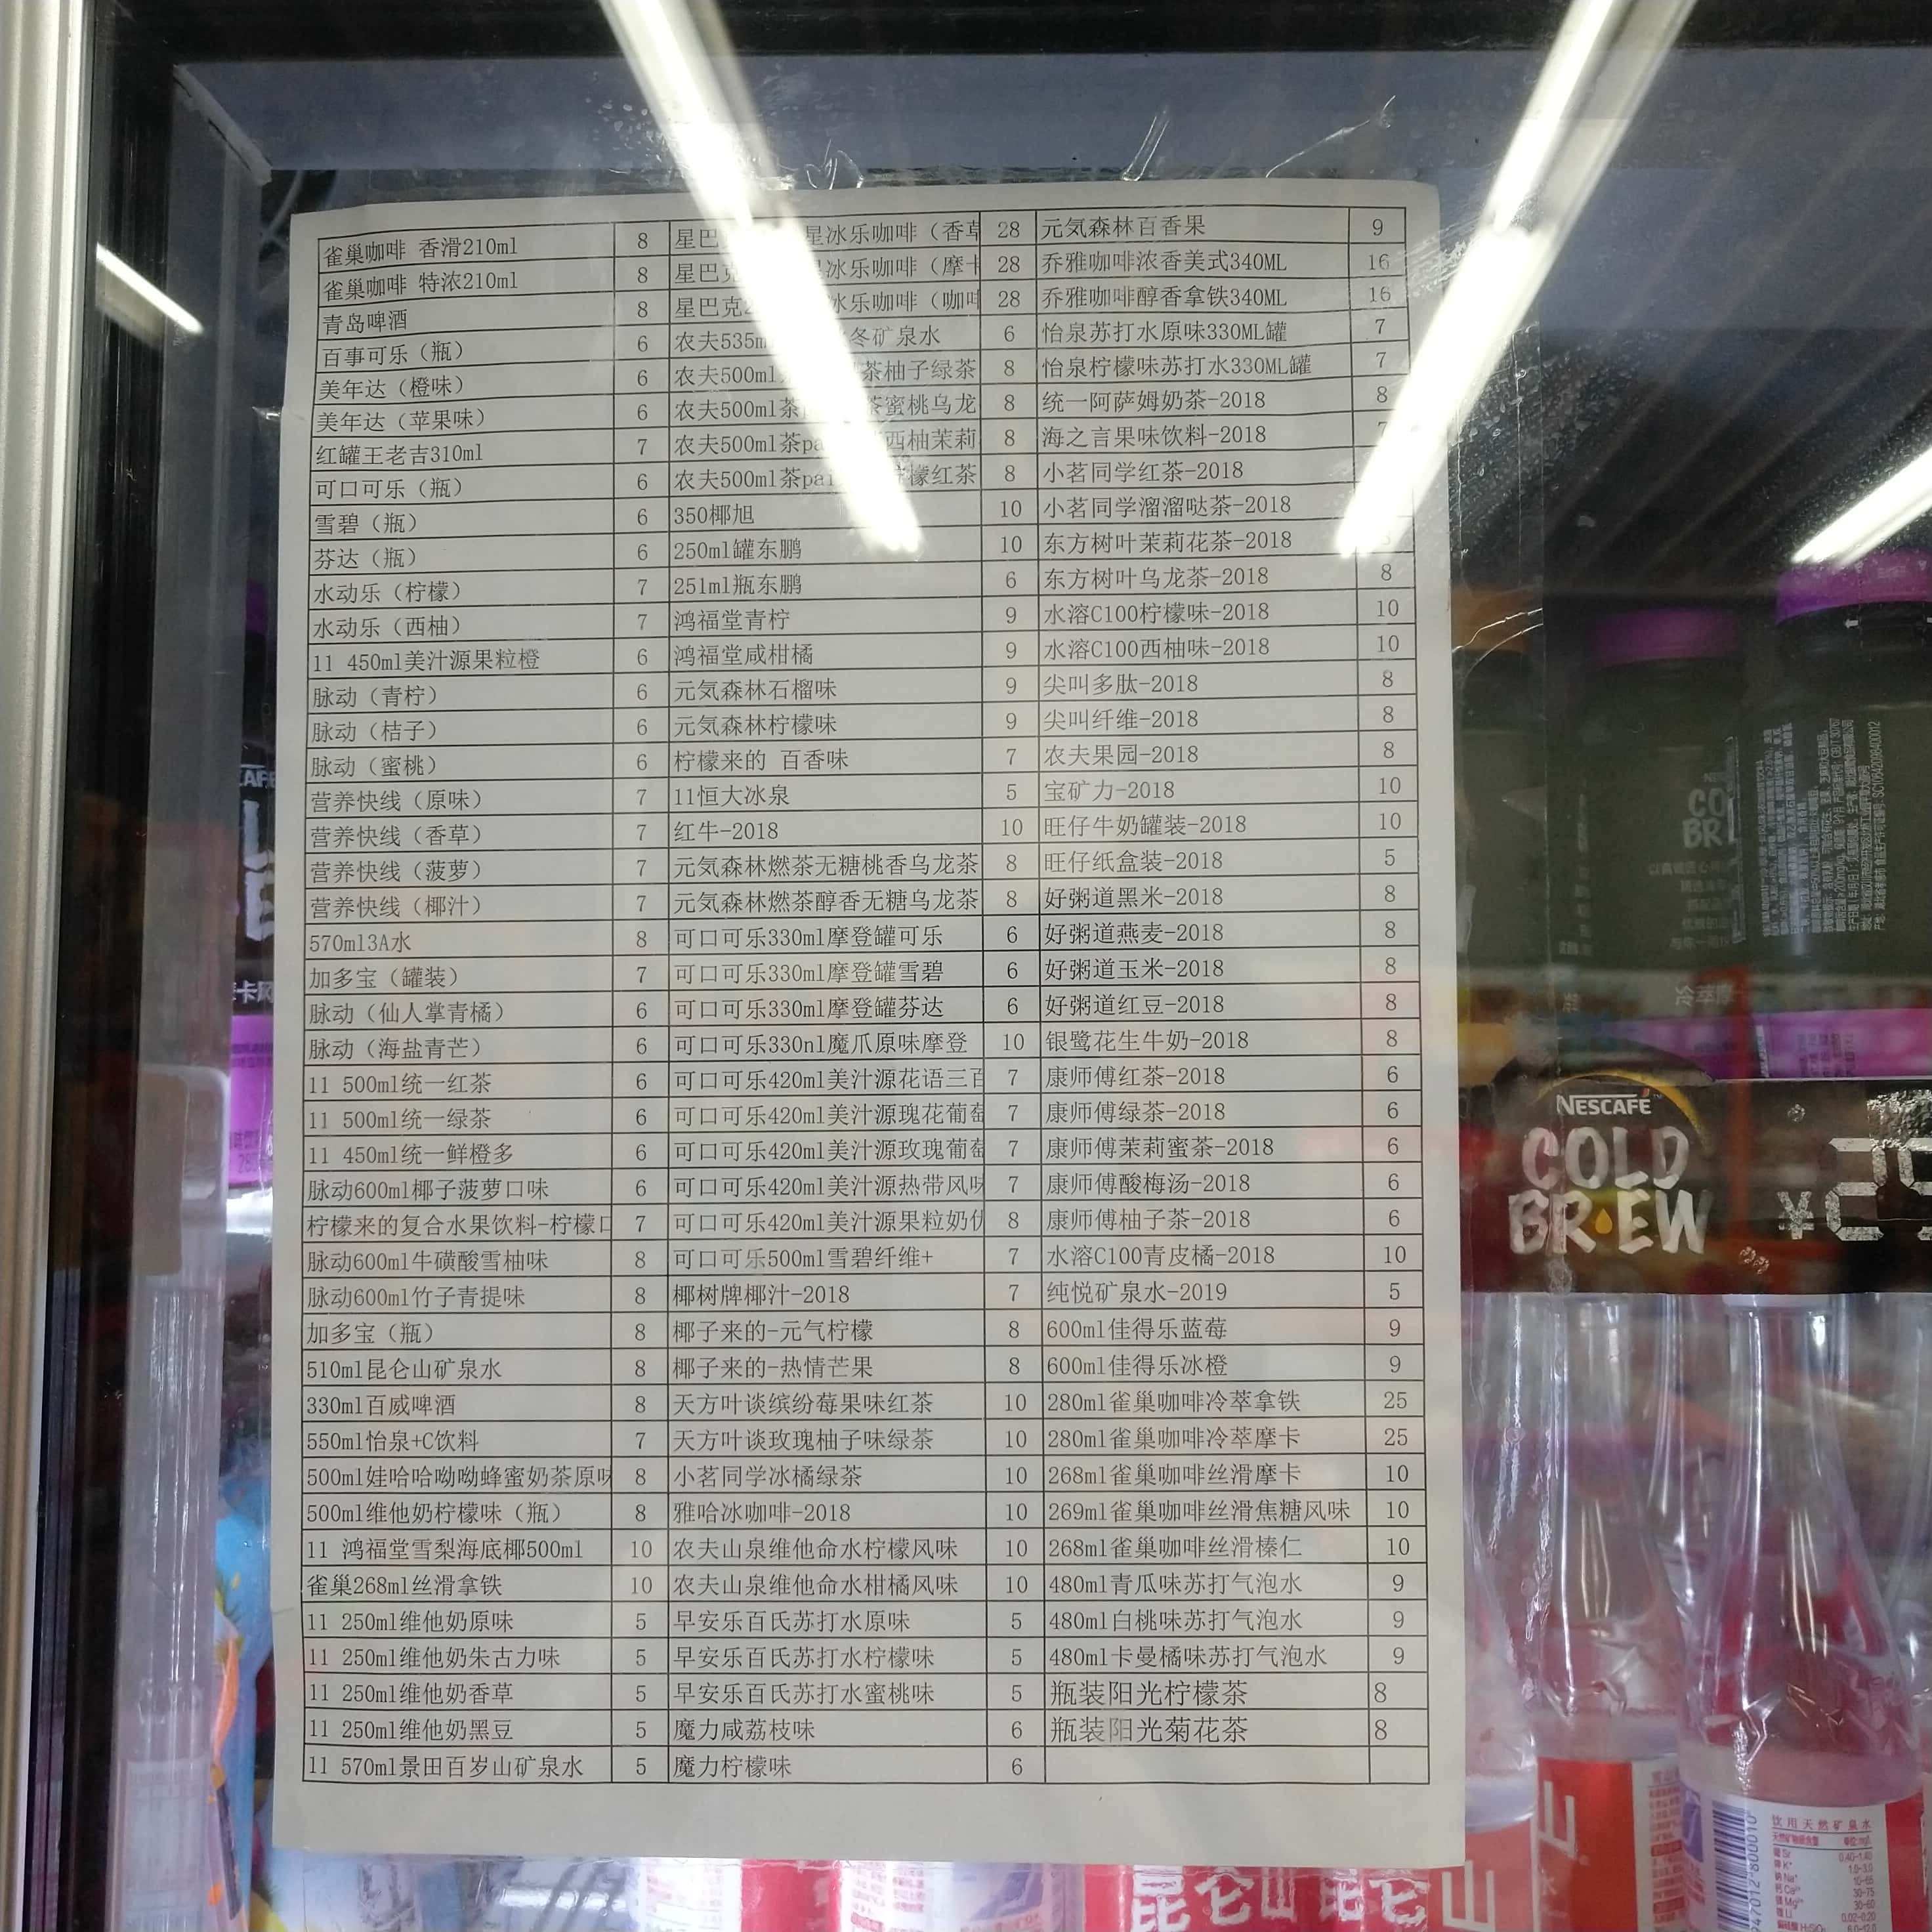 雀巢咖啡 香滑210ml 8 星巴 星冰乐咖啡（香草 28 元気森林百香果 9
雀巢咖啡 特浓210ml 8 星巴克 冰乐咖啡（摩卡 28 乔雅咖啡浓香美式340ML 16
青岛啤酒 8 星巴克2 冰乐咖啡（咖啡 28 乔雅咖啡醇香拿铁340ML 16
百事可乐（瓶） 6 农夫535m 冬矿泉水 6 怡泉苏打水原味330ML罐 7
美年达（橙味） 6 农夫500ml 茶柚子绿茶 8 怡泉柠檬味苏打水330ML罐 7
美年达（苹果味） 6 农夫500ml茶 茶蜜桃乌龙 8 统一阿萨姆奶茶-2018 8
红罐王老吉310ml 7 农夫500ml茶pa 西柚茉莉 8 海之言果味饮料-2018
可口可乐（瓶） 6 农夫500ml茶pai 檬红茶 8 小茗同学红茶-2018
雪碧（瓶） 6 350椰旭 10 小茗同学溜溜哒茶-2018
芬达（瓶） 6 250ml罐东鹏 10 东方树叶茉莉花茶-2018
水动乐（柠檬） 7 251ml瓶东鹏 6 东方树叶乌龙茶-2018 8
水动乐（西柚） 7 鸿福堂青柠 9 水溶C100柠檬味-2018 10
11 450ml美汁源果粒橙 6 鸿福堂咸柑橘 9 水溶C100西柚味-2018 10
脉动（青柠） 6 元気森林石榴味 9 尖叫多肽-2018 8
脉动（桔子） 6 元気森林柠檬味 9 尖叫纤维-2018 8
脉动（蜜桃） 6 柠檬来的 百香味 7 农夫果园-2018 8
营养快线（原味） 7 11恒大冰泉 5 宝矿力-2018 10
营养快线（香草） 7 红牛-2018 10 旺仔牛奶罐装-2018 10
营养快线（菠萝） 7 元気森林燃茶无糖桃香乌龙茶 8 旺仔纸盒装-2018 5
营养快线（椰汁） 7 元気森林燃茶醇香无糖乌龙茶 8 好粥道黑米-2018 8
570ml3A水 8 可口可乐330ml摩登罐可乐 6 好粥道燕麦-2018 8
加多宝（罐装） 7 可口可乐330ml摩登罐雪碧 6 好粥道玉米-2018 8
脉动（仙人掌青橘） 6 可口可乐330ml摩登罐芬达 6 好粥道红豆-2018 8
脉动（海盐青芒） 6 可口可乐330nl魔爪原味摩登 10 银鹭花生牛奶-2018 8
11 500ml统一红茶 6 可口可乐420ml美汁源花语三百 7 康师傅红茶-2018 6
11 500ml统一绿茶 6 可口可乐420ml美汁源瑰花葡萄 7 康师傅绿茶-2018 6
11 450ml统一鲜橙多 6 可口可乐420ml美汁源玫瑰葡萄 7 康师傅茉莉蜜茶-2018 6
脉动600ml椰子菠萝口味 6 可口可乐420ml美汁源热带风味 7 康师傅酸梅汤-2018 6
柠檬来的复合水果饮料-柠檬口 7 可口可乐420ml美汁源果粒奶优 8 康师傅柚子茶-2018 6
脉动600ml牛磺酸雪柚味 8 可口可乐500ml雪碧纤维+ 7 水溶C100青皮橘-2018 10
脉动600ml竹子青提味 8 椰树牌椰汁-2018 7 纯悦矿泉水-2019 5
加多宝（瓶） 8 椰子来的-元气柠檬 8 600ml佳得乐蓝莓 9
510ml昆仑山矿泉水 8 椰子来的-热情芒果 8 600ml佳得乐冰橙 9
330ml百威啤酒 8 天方叶谈缤纷莓果味红茶 10 280ml雀巢咖啡冷萃拿铁 25
550ml怡泉+C饮料 7 天方叶谈玫瑰柚子味绿茶 10 280ml雀巢咖啡冷萃摩卡 25
500ml娃哈哈呦呦蜂蜜奶茶原味 8 小茗同学冰橘绿茶 10 268ml雀巢咖啡丝滑摩卡 10
500ml维他奶柠檬味（瓶） 8 雅哈冰咖啡-2018 10 269ml雀巢咖啡丝滑焦糖风味 10
11 鸿福堂雪梨海底椰500ml 10 农夫山泉维他命水柠檬风味 10 268ml雀巢咖啡丝滑榛仁 10
雀巢268ml丝滑拿铁 10 农夫山泉维他命水柑橘风味 10 480ml青瓜味苏打气泡水 9
11 250ml维他奶原味 5 早安乐百氏苏打水原味 5 480ml白桃味苏打气泡水 9
11 250ml维他奶朱古力味 5 早安乐百氏苏打水柠檬味 5 480ml卡曼橘味苏打气泡水 9
11 250ml维他奶香草 5 早安乐百氏苏打水蜜桃味 5 瓶装阳光柠檬茶 8
11 250ml维他奶黑豆 5 魔力咸荔枝味 6 瓶装阳光菊花茶 8
11 570ml景田百岁山矿泉水 5 魔力柠檬味 6
NESCAFÉ
COLD
BREW
¥25
昆仑山 昆仑山
饮用天然矿泉水